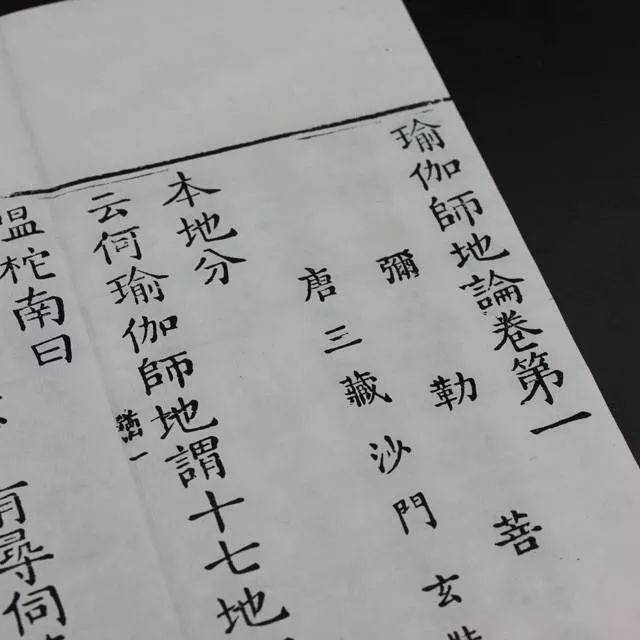 瑜伽師地論卷第一
彌勒菩
唐三藏沙門玄
本地分
云何瑜伽師地謂十七地
嗢柁南曰
尋伺